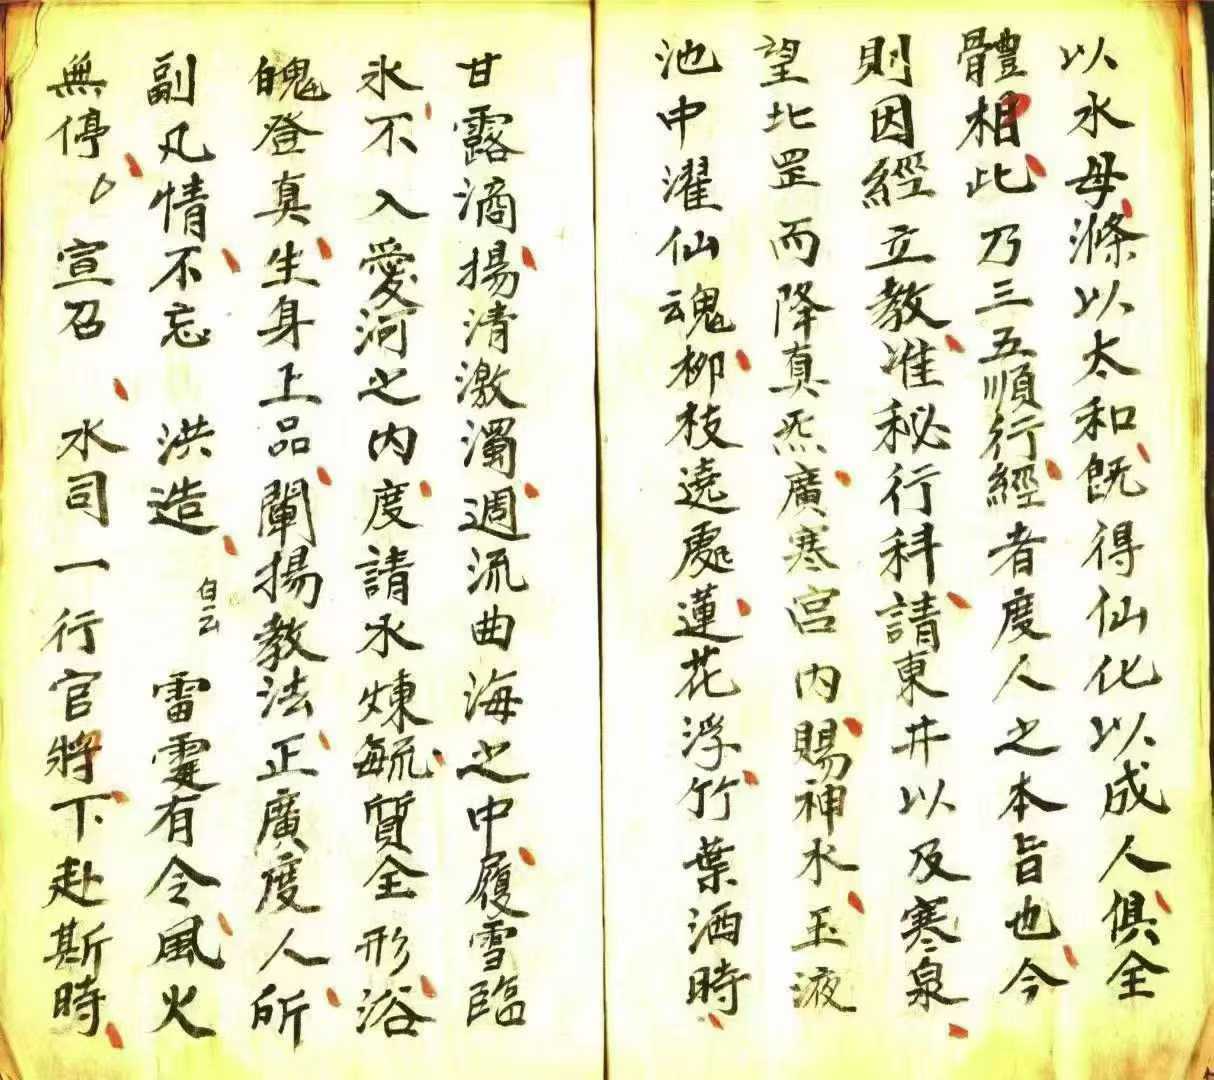 以水母滌以太和旣得仙化以成人俱全
體相此乃三五順行經者度人之本旨也今
則因經立教准秘行科請東井以及寒泉
望北罡而降真炁廣寒宮内賜神水玉液
池中濯仙魂柳枝遶處蓮花浮竹葉洒時
甘露滴揚清激濁週流曲海之中履雪臨
氷不入愛河之内度請水煉毓質全形浴
魄登真生身上品闡揚教法正廣度人所
副凡情不忘 洪造 白云 雷霆有令風火
無停 宣召 水司一行官將下赴斯時